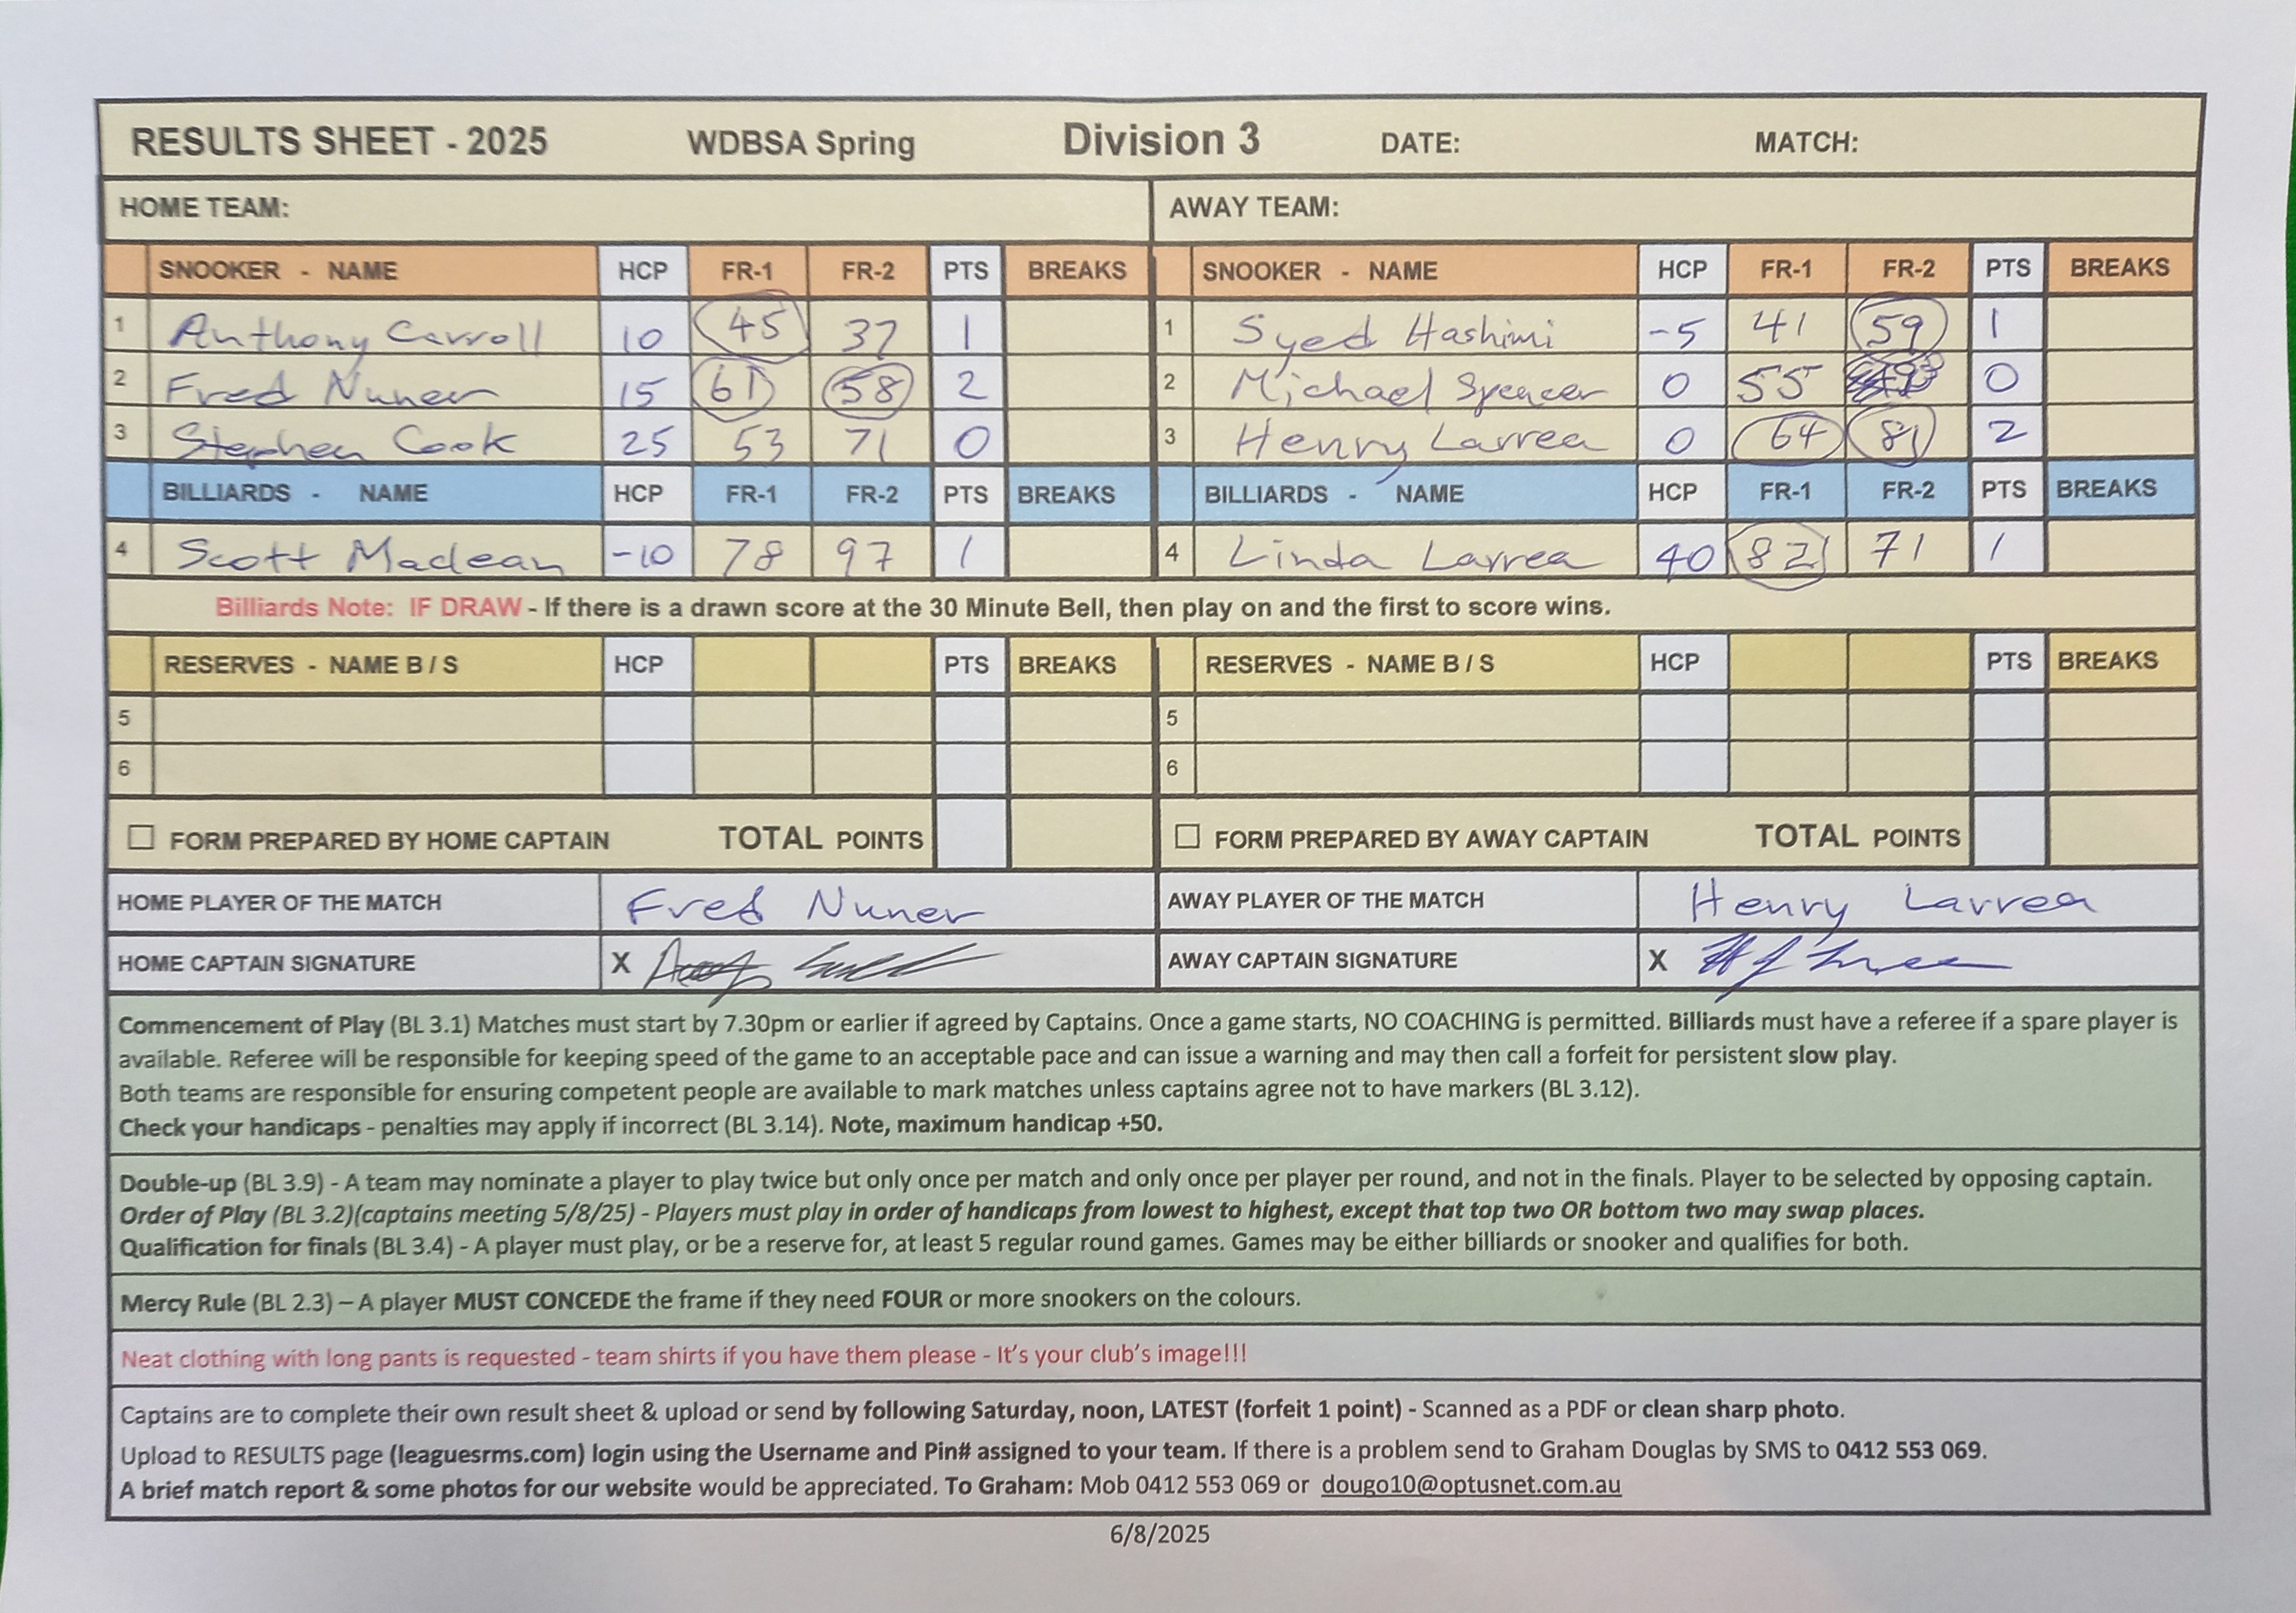 RESULTS SHEET - 2025 WDBSA Spring Division 3 DATE: MATCH:
HOME TEAM: AWAY TEAM:
SNOOKER - NAME HCP FR-1 FR-2 PTS BREAKS SNOOKER - NAME HCP FR-1 FR-2 PTS BREAKS
1 Anthony Carroll 10 45 37 1 1 Syed Hashimi -5 41 59 1
2 Fred Nuner 15 61 58 2 2 Michael Spencer 0 55 0
3 Stephen Cook 25 53 71 0 3 Henry Larrea 0 64 81 2
BILLIARDS - NAME HCP FR-1 FR-2 PTS BREAKS BILLIARDS - NAME HCP FR-1 FR-2 PTS BREAKS
4 Scott Maclean -10 78 97 1 4 Linda Larrea 40 82 71 1
Billiards Note: IF DRAW - If there is a drawn score at the 30 Minute Bell, then play on and the first to score wins.
RESERVES - NAME B / S HCP PTS BREAKS RESERVES - NAME B / S HCP PTS BREAKS
5 5
6 6
FORM PREPARED BY HOME CAPTAIN TOTAL POINTS FORM PREPARED BY AWAY CAPTAIN TOTAL POINTS
HOME PLAYER OF THE MATCH Fred Nuner AWAY PLAYER OF THE MATCH Henry Larrea
HOME CAPTAIN SIGNATURE X AWAY CAPTAIN SIGNATURE X
Commencement of Play (BL 3.1) Matches must start by 7.30pm or earlier if agreed by Captains. Once a game starts, NO COACHING is permitted. Billiards must have a referee if a spare player is
available. Referee will be responsible for keeping speed of the game to an acceptable pace and can issue a warning and may then call a forfeit for persistent slow play.
Both teams are responsible for ensuring competent people are available to mark matches unless captains agree not to have markers (BL 3.12).
Check your handicaps - penalties may apply if incorrect (BL 3.14). Note, maximum handicap +50.
Double-up (BL 3.9) - A team may nominate a player to play twice but only once per match and only once per player per round, and not in the finals. Player to be selected by opposing captain.
Order of Play (BL 3.2)(captains meeting 5/8/25) - Players must play in order of handicaps from lowest to highest, except that top two OR bottom two may swap places.
Qualification for finals (BL 3.4) - A player must play, or be a reserve for, at least 5 regular round games. Games may be either billiards or snooker and qualifies for both.
Mercy Rule (BL 2.3) – A player MUST CONCEDE the frame if they need FOUR or more snookers on the colours.
Neat clothing with long pants is requested - team shirts if you have them please - It's your club's image!!!
Captains are to complete their own result sheet & upload or send by following Saturday, noon, LATEST (forfeit 1 point) - Scanned as a PDF or clean sharp photo.
Upload to RESULTS page (leaguesrms.com) login using the Username and Pin# assigned to your team. If there is a problem send to Graham Douglas by SMS to 0412 553 069.
A brief match report & some photos for our website would be appreciated. To Graham: Mob 0412 553 069 or dougo10@optusnet.com.au
6/8/2025